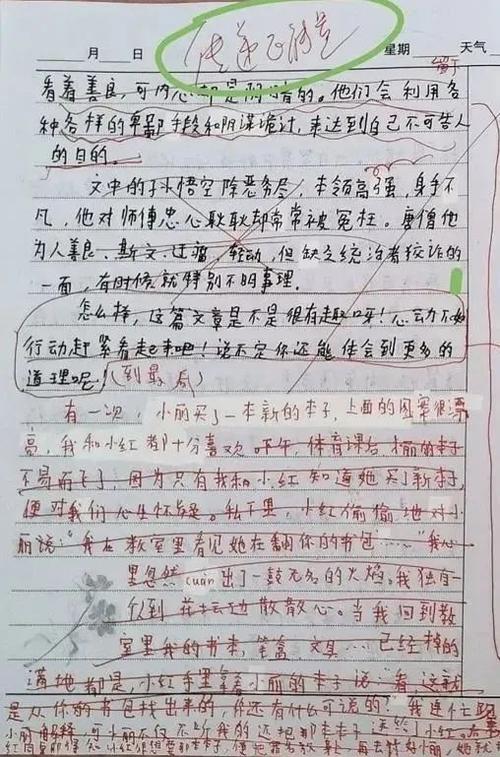 传递正能量
月 日 星期 天气
看着善良，可内心却是阴暗的。他们会利用各
种各样的卑鄙手段和阴谋诡计，来达到自己不可告人
的目的。
文中的孙悟空除恶务尽，本领高强，身手不
凡，他对师傅忠心耿耿却常常被冤枉。唐僧他
为人善良、斯文、但缺乏统治者狡诈的
一面，有时候就特别不明事理。
怎么样，这篇文章是不是很有趣呀！心动不如
行动赶紧看起来吧！说不定你还能体会到更多的
道理呢！（到最后）
有一次，小丽买了一本新的本子，上面的图案很漂
亮，我和小红都十分喜欢 下午，体育课后 小丽的本子
不翼而飞了，因为只有我和小红知道她买了新本子，
便对我们心生怀疑。私下里，小红偷偷地对小
丽说："我在教室里看见她在翻你的书包……"我心
里忽然cuàn出了一鼓无名的火焰。我独自一
散散心。当我回到教
室里我的书本，笔盒，文具……已经掉的
满地都是，小红手里拿着小丽的本子说："看，这就
是从你的书包找出来的，你还有什么可说的？"我连忙
小丽 可小丽不仅不听我的还把那本本子送给了小红。